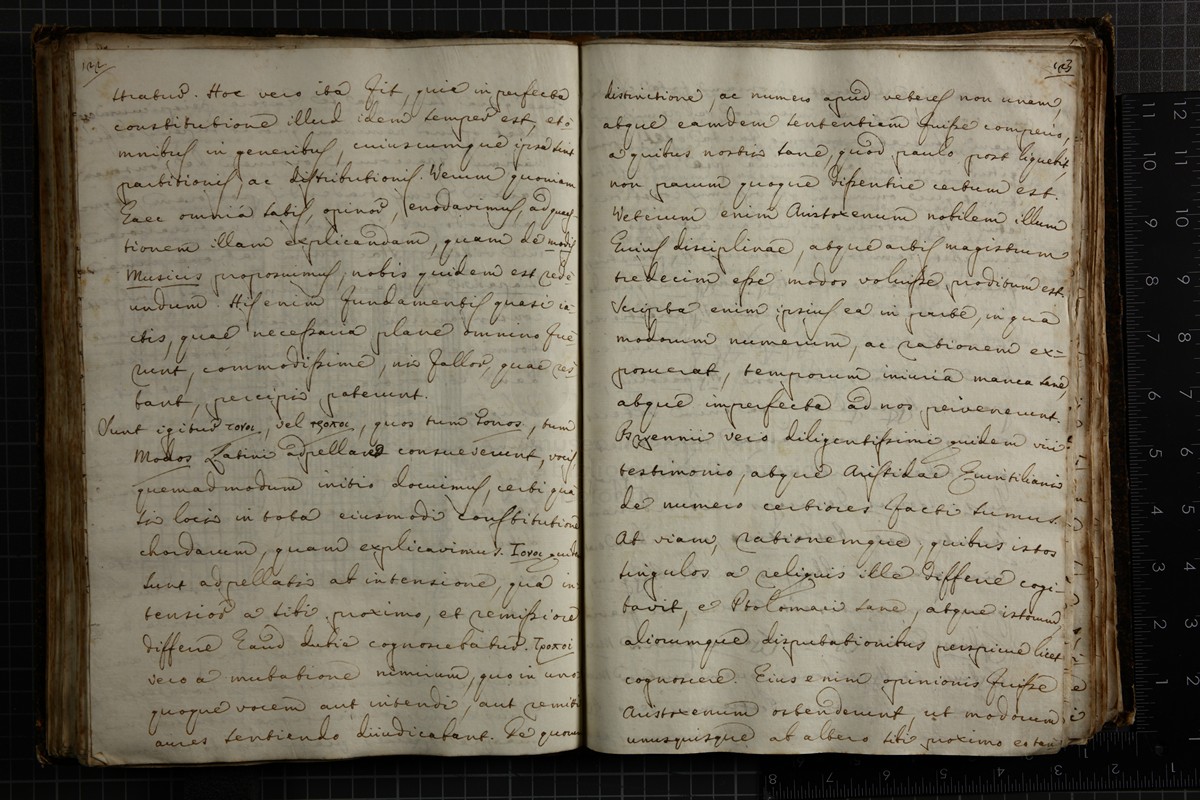 122
stratur. Hoc vero ita fit, quia in perfecta
constitutione illud idem semper est, et o=
mnibus in generibus, cuiuscumque ipsa sint
partitionis, ac distributionis. Verum quoniam
haec omnia satis, opinor, enodavimus, ad quaes-
tionem illam explicandam, quam de modis
Musicis proposuimus, nobis quidem est rede=
undum. His enim fundamentis quasi ia=
ctis, quae necessaria plane omnino fue=
runt, commodissime, ni fallor, quae res=
tant, percipi poterunt.
Sunt igitur τονοι, vel τροποι, quos tum Tonos, tum
Modos Latini adpellare consueverunt, vocis,
quemadmodum initio docuimus, certi qua=
si loci in tota eiusmodi constitutione
chordarum, quam explicavimus. Τονοι quidem
sunt adpellati ab intensione, qua in=
tensior a sibi proximo, et remissiore
differre haud dubie cognoscebatur. Τροποι
vero a mutatione nimirum, quo in uno
quoque vocem aut intendi, aut remitti
aures sentiendo diiudicabant. De quorum
123
distinctione, ac numero apud veteres non unam,
atque eamdem sententiam fuisse comperio,
a quibus nostri sane, quod paulo post liquebit,
non parum quoque dissentire certum est.
Veterum enim Aristoxenum nobilem illum
huius disciplinae, atque artis magistrum
tredecim esse modos voluisse proditum est.
Scripta enim ipsius ea in parte, in qua
modorum numerum, ac rationem ex=
posuerat, temporum iniuria manca sane,
atque imperfecta ad nos pervenerunt.
Bryennii vero diligentissimi quidem viri
testimonio, atque Aristidae Quintiliani
de numero certiores facti sumus.
At viam, rationemque, quibus istos
singulos a reliquis ille differre cogi-
tavit, e Ptolomaei sane, atque istorum
aliorumque disputationibus perspicue licet
cognoscere. Eius enim opinionis fuisse
Aristoxenum ostenderunt, ut modorum
unusquisque ab altero sibi proximo eo tan